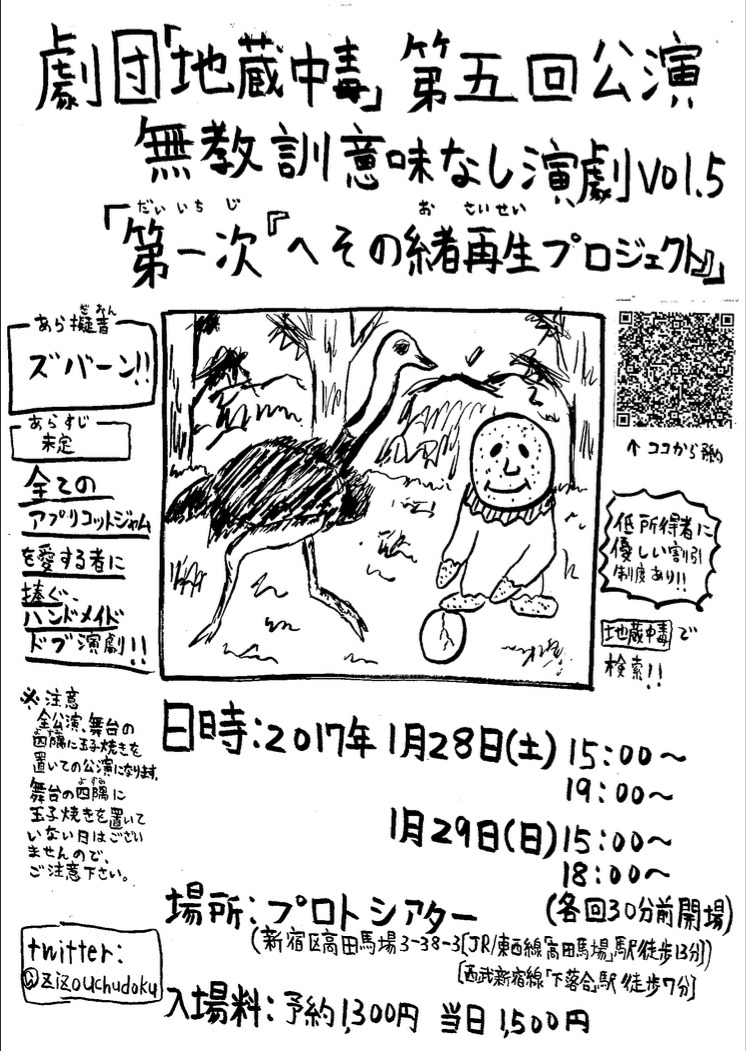 劇団「地蔵中毒」第五回公演
無教訓意味なし演劇vol.5
だいいちじ おさいせい
「第一次『へその緒再生プロジェクト』」
ぎおん
あら擬音
ズバーン!!
あらすじ
未定
全ての
アプリコットジャム
を愛する者に
捧ぐ、
ハンドメイド
ドブ演劇!!
↑ココから予約
低所得者に
優しい割引
制度あり!!
地蔵中毒で
検索!!
※注意
全公演、舞台の
四隅に玉子焼きを
置いての公演になります。
よすみ
舞台の四隅に
玉子焼きを置いて
いない日はござい
ませんので、
ご注意下さい。
twitter:
@zizouchudoku
日時:2017年1月28日(土)15:00〜
19:00〜
1月29日(日)15:00〜
18:00〜
(各回30分前開場)
場所:プロトシアター
(新宿区高田馬場3-38-3[JR/東西線「高田馬場」駅徒歩13分])
[西武新宿線「下落合」駅徒歩7分]
入場料:予約1,300円 当日1,500円